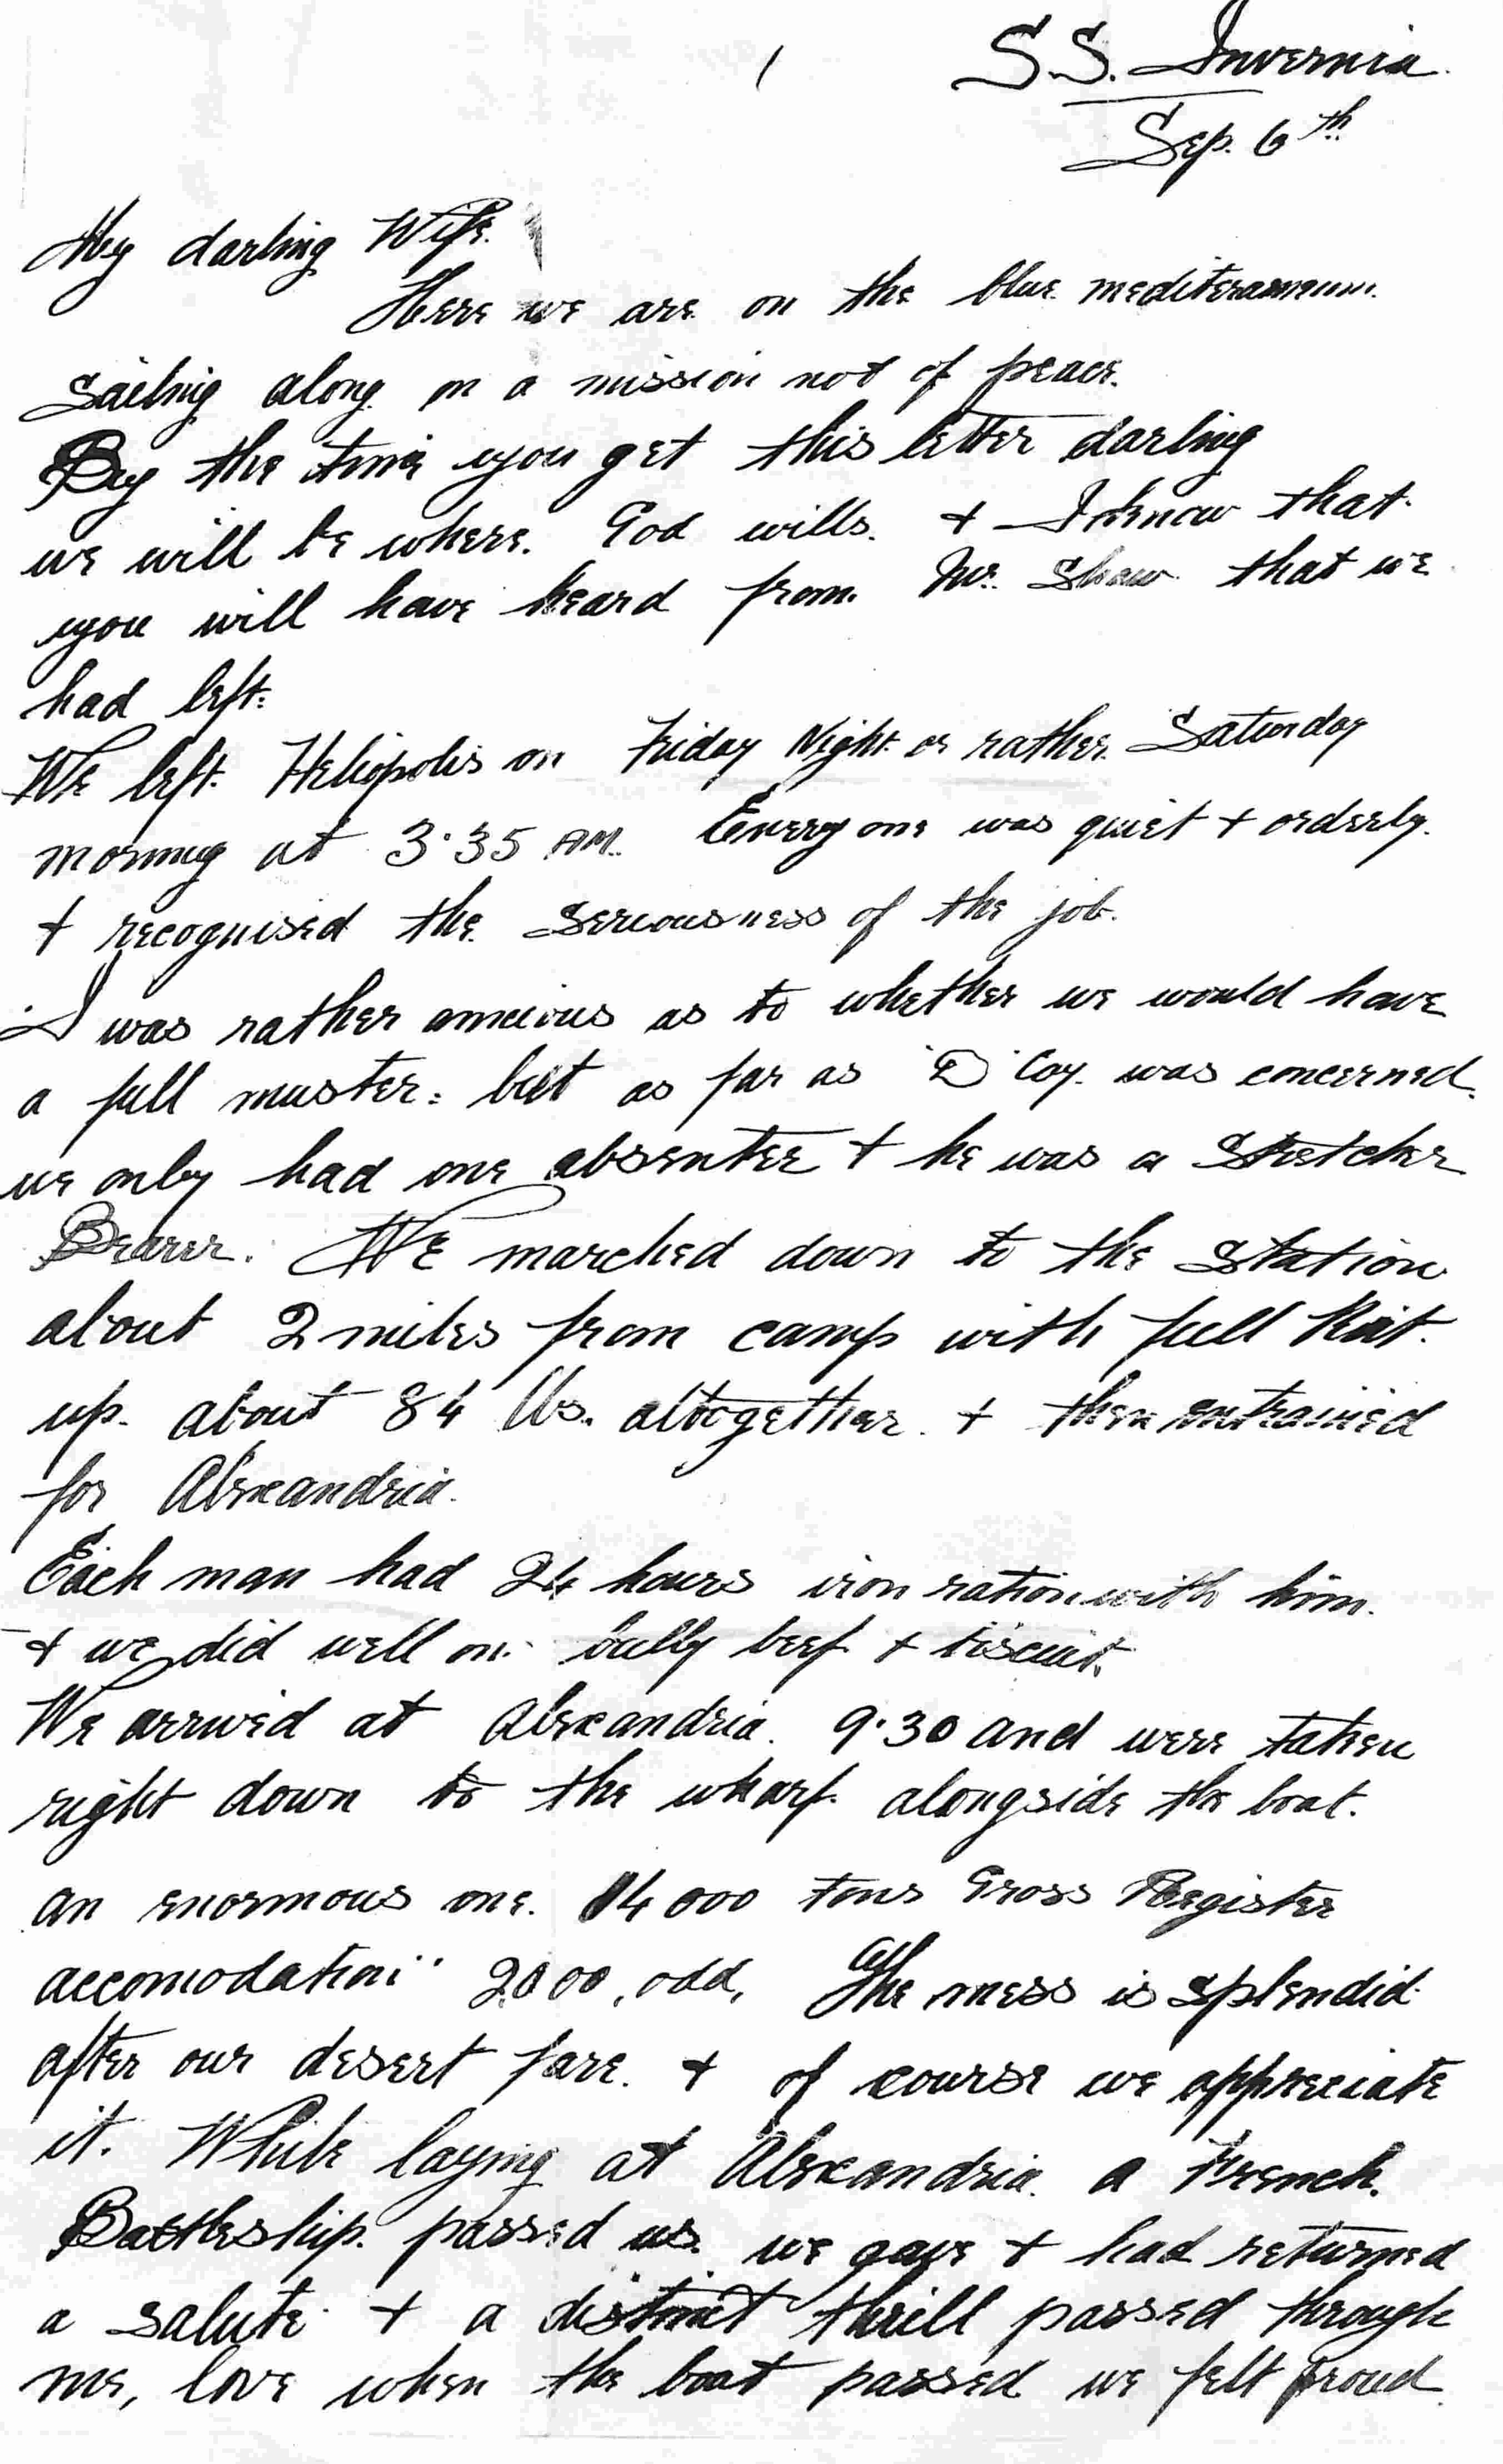 1
S.S. Invernia
Sep. 6th
My darling Wife.
Here we are on the blue mediteranneum.
Sailing along on a mission not of peace.
By the time you get this letter darling
we will be where. God wills. + I know that
you will have heard from Mr. Shaw that we
had left.
We left Heliopolis on Friday Night or rather Saturday
morning at 3.35 AM. Every one was quiet + orderly.
+ recognised the seriousness of the job.
I was rather anxious as to whether we would have
a full muster: but as far as 'D' Coy. was concerned.
we only had one absentee + he was a Stretcher
Bearer. We marched down to the Station
about 2 miles from camp with full Kit.
up. about 84 lbs. altogether. + then entrained
for Alexandria.
Each man had 24 hours iron ration with him.
+ we did well on bully beef + biscuit.
We arrived at Alexandria. 9.30 and were taken
right down to the wharf. alongside the boat.
an enormous one. 14000 tons Gross Register
accomodation 2000, odd, The mess is splendid
after our desert fare. + of course we appreciate
it. While laying at Alexandria. a French.
Battleship. passed us. we gave + had returned
a salute + a distinct thrill passed through
me, love when the boat passed we felt proud